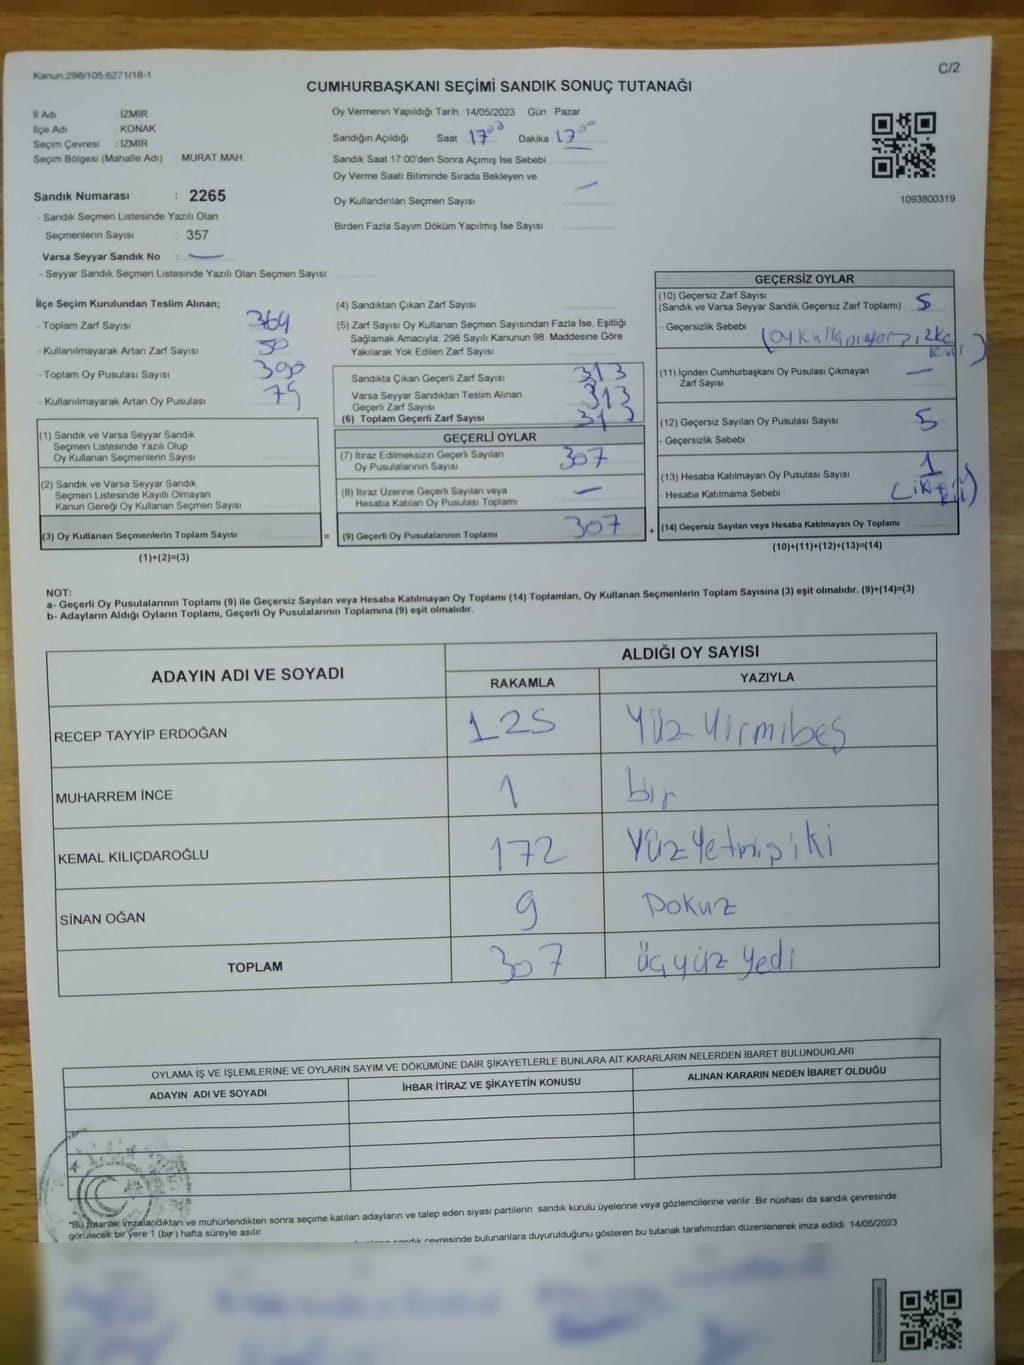 Kanun:298/105;6271/18-1
C/2
CUMHURBAŞKANI SEÇİMİ SANDIK SONUÇ TUTANAĞI
İl Adı İZMİR
İlçe Adı KONAK
Seçim Çevresi : İZMİR
Seçim Bölgesi (Mahalle Adı) MURAT MAH.
Sandık Numarası : 2265
- Sandık Seçmen Listesinde Yazılı Olan
Seçmenlerin Sayısı : 357
Varsa Seyyar Sandık No : —
- Seyyar Sandık Seçmen Listesinde Yazılı Olan Seçmen Sayısı
Oy Vermenin Yapıldığı Tarih 14/05/2023 Gün Pazar
Sandığın Açıldığı Saat 17⁰⁰ Dakika 17⁰⁰
Sandık Saat 17:00'den Sonra Açımış İse Sebebi
Oy Verme Saati Bitiminde Sırada Bekleyen ve
Oy Kullandırılan Seçmen Sayısı —
Birden Fazla Sayım Döküm Yapılmış İse Sayısı
1093800319
İlçe Seçim Kurulundan Teslim Alınan;
- Toplam Zarf Sayısı 364
- Kullanılmayarak Artan Zarf Sayısı 50
- Toplam Oy Pusulası Sayısı 390
- Kullanılmayarak Artan Oy Pusulası 75
(1) Sandık ve Varsa Seyyar Sandık
Seçmen Listesinde Yazılı Olup
Oy Kullanan Seçmenlerin Sayısı
(2) Sandık ve Varsa Seyyar Sandık
Seçmen Listesinde Kayıtlı Olmayan
Kanun Gereği Oy Kullanan Seçmen Sayısı
(3) Oy Kullanan Seçmenlerin Toplam Sayısı =
(1)+(2)=(3)
(4) Sandıktan Çıkan Zarf Sayısı
(5) Zarf Sayısı Oy Kullanan Seçmen Sayısından Fazla İse, Eşitliği
Sağlamak Amacıyla, 298 Sayılı Kanunun 98. Maddesine Göre
Yakılarak Yok Edilen Zarf Sayısı
Sandıkta Çıkan Geçerli Zarf Sayısı 313
Varsa Seyyar Sandıktan Teslim Alınan
Geçerli Zarf Sayısı 313
(6) Toplam Geçerli Zarf Sayısı 313
GEÇERLİ OYLAR
(7) İtiraz Edilmeksizin Geçerli Sayılan
Oy Pusulalarının Sayısı 307
(8) İtiraz Üzerine Geçerli Sayılan veya
Hesaba Katılan Oy Pusulası Toplamı —
(9) Geçerli Oy Pusulalarının Toplamı 307 +
GEÇERSİZ OYLAR
(10) Geçersiz Zarf Sayısı
(Sandık ve Varsa Seyyar Sandık Geçersiz Zarf Toplamı) 5
- Geçersizlik Sebebi
(11) İçinden Cumhurbaşkanı Oy Pusulası Çıkmayan
Zarf Sayısı —
(12) Geçersiz Sayılan Oy Pusulası Sayısı 5
- Geçersizlik Sebebi
(13) Hesaba Katılmayan Oy Pusulası Sayısı 1
- Hesaba Katılmama Sebebi
(14) Geçersiz Sayılan veya Hesaba Katılmayan Oy Toplamı
(10)+(11)+(12)+(13)=(14)
NOT:
a- Geçerli Oy Pusulalarının Toplamı (9) ile Geçersiz Sayılan veya Hesaba Katılmayan Oy Toplamı (14) Toplamları, Oy Kullanan Seçmenlerin Toplam Sayısına (3) eşit olmalıdır. (9)+(14)=(3)
b- Adayların Aldığı Oyların Toplamı, Geçerli Oy Pusulalarının Toplamına (9) eşit olmalıdır.
ADAYIN ADI VE SOYADI
ALDIĞI OY SAYISI
RAKAMLA YAZIYLA
RECEP TAYYİP ERDOĞAN 125 Yüz Yirmibeş
MUHARREM İNCE 1 bir
KEMAL KILIÇDAROĞLU 172 Yüz Yetmiş iki
SİNAN OĞAN 9 Dokuz
TOPLAM 307 üçyüz yedi
OYLAMA İŞ VE İŞLEMLERİNE VE OYLARIN SAYIM VE DÖKÜMÜNE DAİR ŞİKAYETLERLE BUNLARA AİT KARARLARIN NELERDEN İBARET BULUNDUKLARI
ADAYIN ADI VE SOYADI İHBAR İTİRAZ VE ŞİKAYETİN KONUSU ALINAN KARARIN NEDEN İBARET OLDUĞU
*Bu tutanak imzalandıktan ve mühürlendikten sonra seçime katılan adayların ve talep eden siyasi partilerin sandık kurulu üyelerine veya gözlemcilerine verilir. Bir nüshası da sandık çevresinde
görülecek bir yere 1 (bir) hafta süreyle asılır.
sandık çevresinde bulunanlara duyurulduğunu gösteren bu tutanak tarafımızdan düzenlenerek imza edildi. 14/05/2023